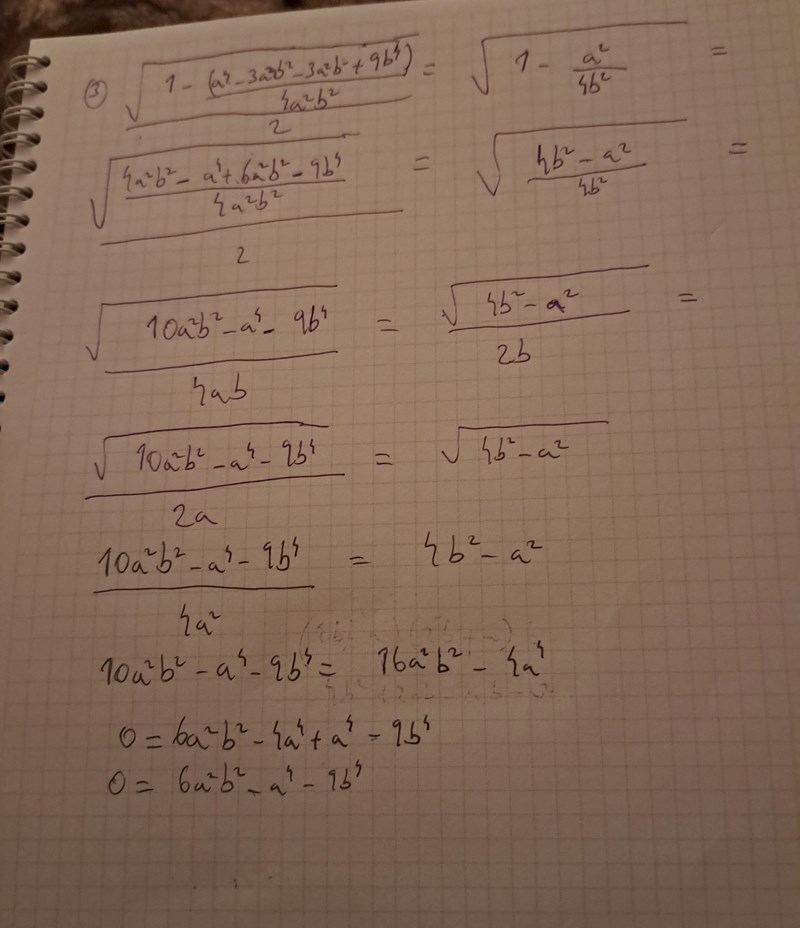 ③ √(1 - (a⁴ - 3a²b² - 3a²b² + 9b⁴)/(4a²b²))/2 = √(1 - a²/(4b²)) =
√((4a²b² - a⁴ + 6a²b² - 9b⁴)/(4a²b²))/2 = √((4b² - a²)/(4b²)) =
√(10a²b² - a⁴ - 9b⁴)/(4ab) = √(4b² - a²)/(2b) =
√(10a²b² - a⁴ - 9b⁴)/(2a) = √(4b² - a²)
(10a²b² - a⁴ - 9b⁴)/(4a²) = 4b² - a²
10a²b² - a⁴ - 9b⁴ = 16a²b² - 4a⁴
0 = 6a²b² - 4a⁴ + a⁴ - 9b⁴
0 = 6a²b² - a⁴ - 9b⁴